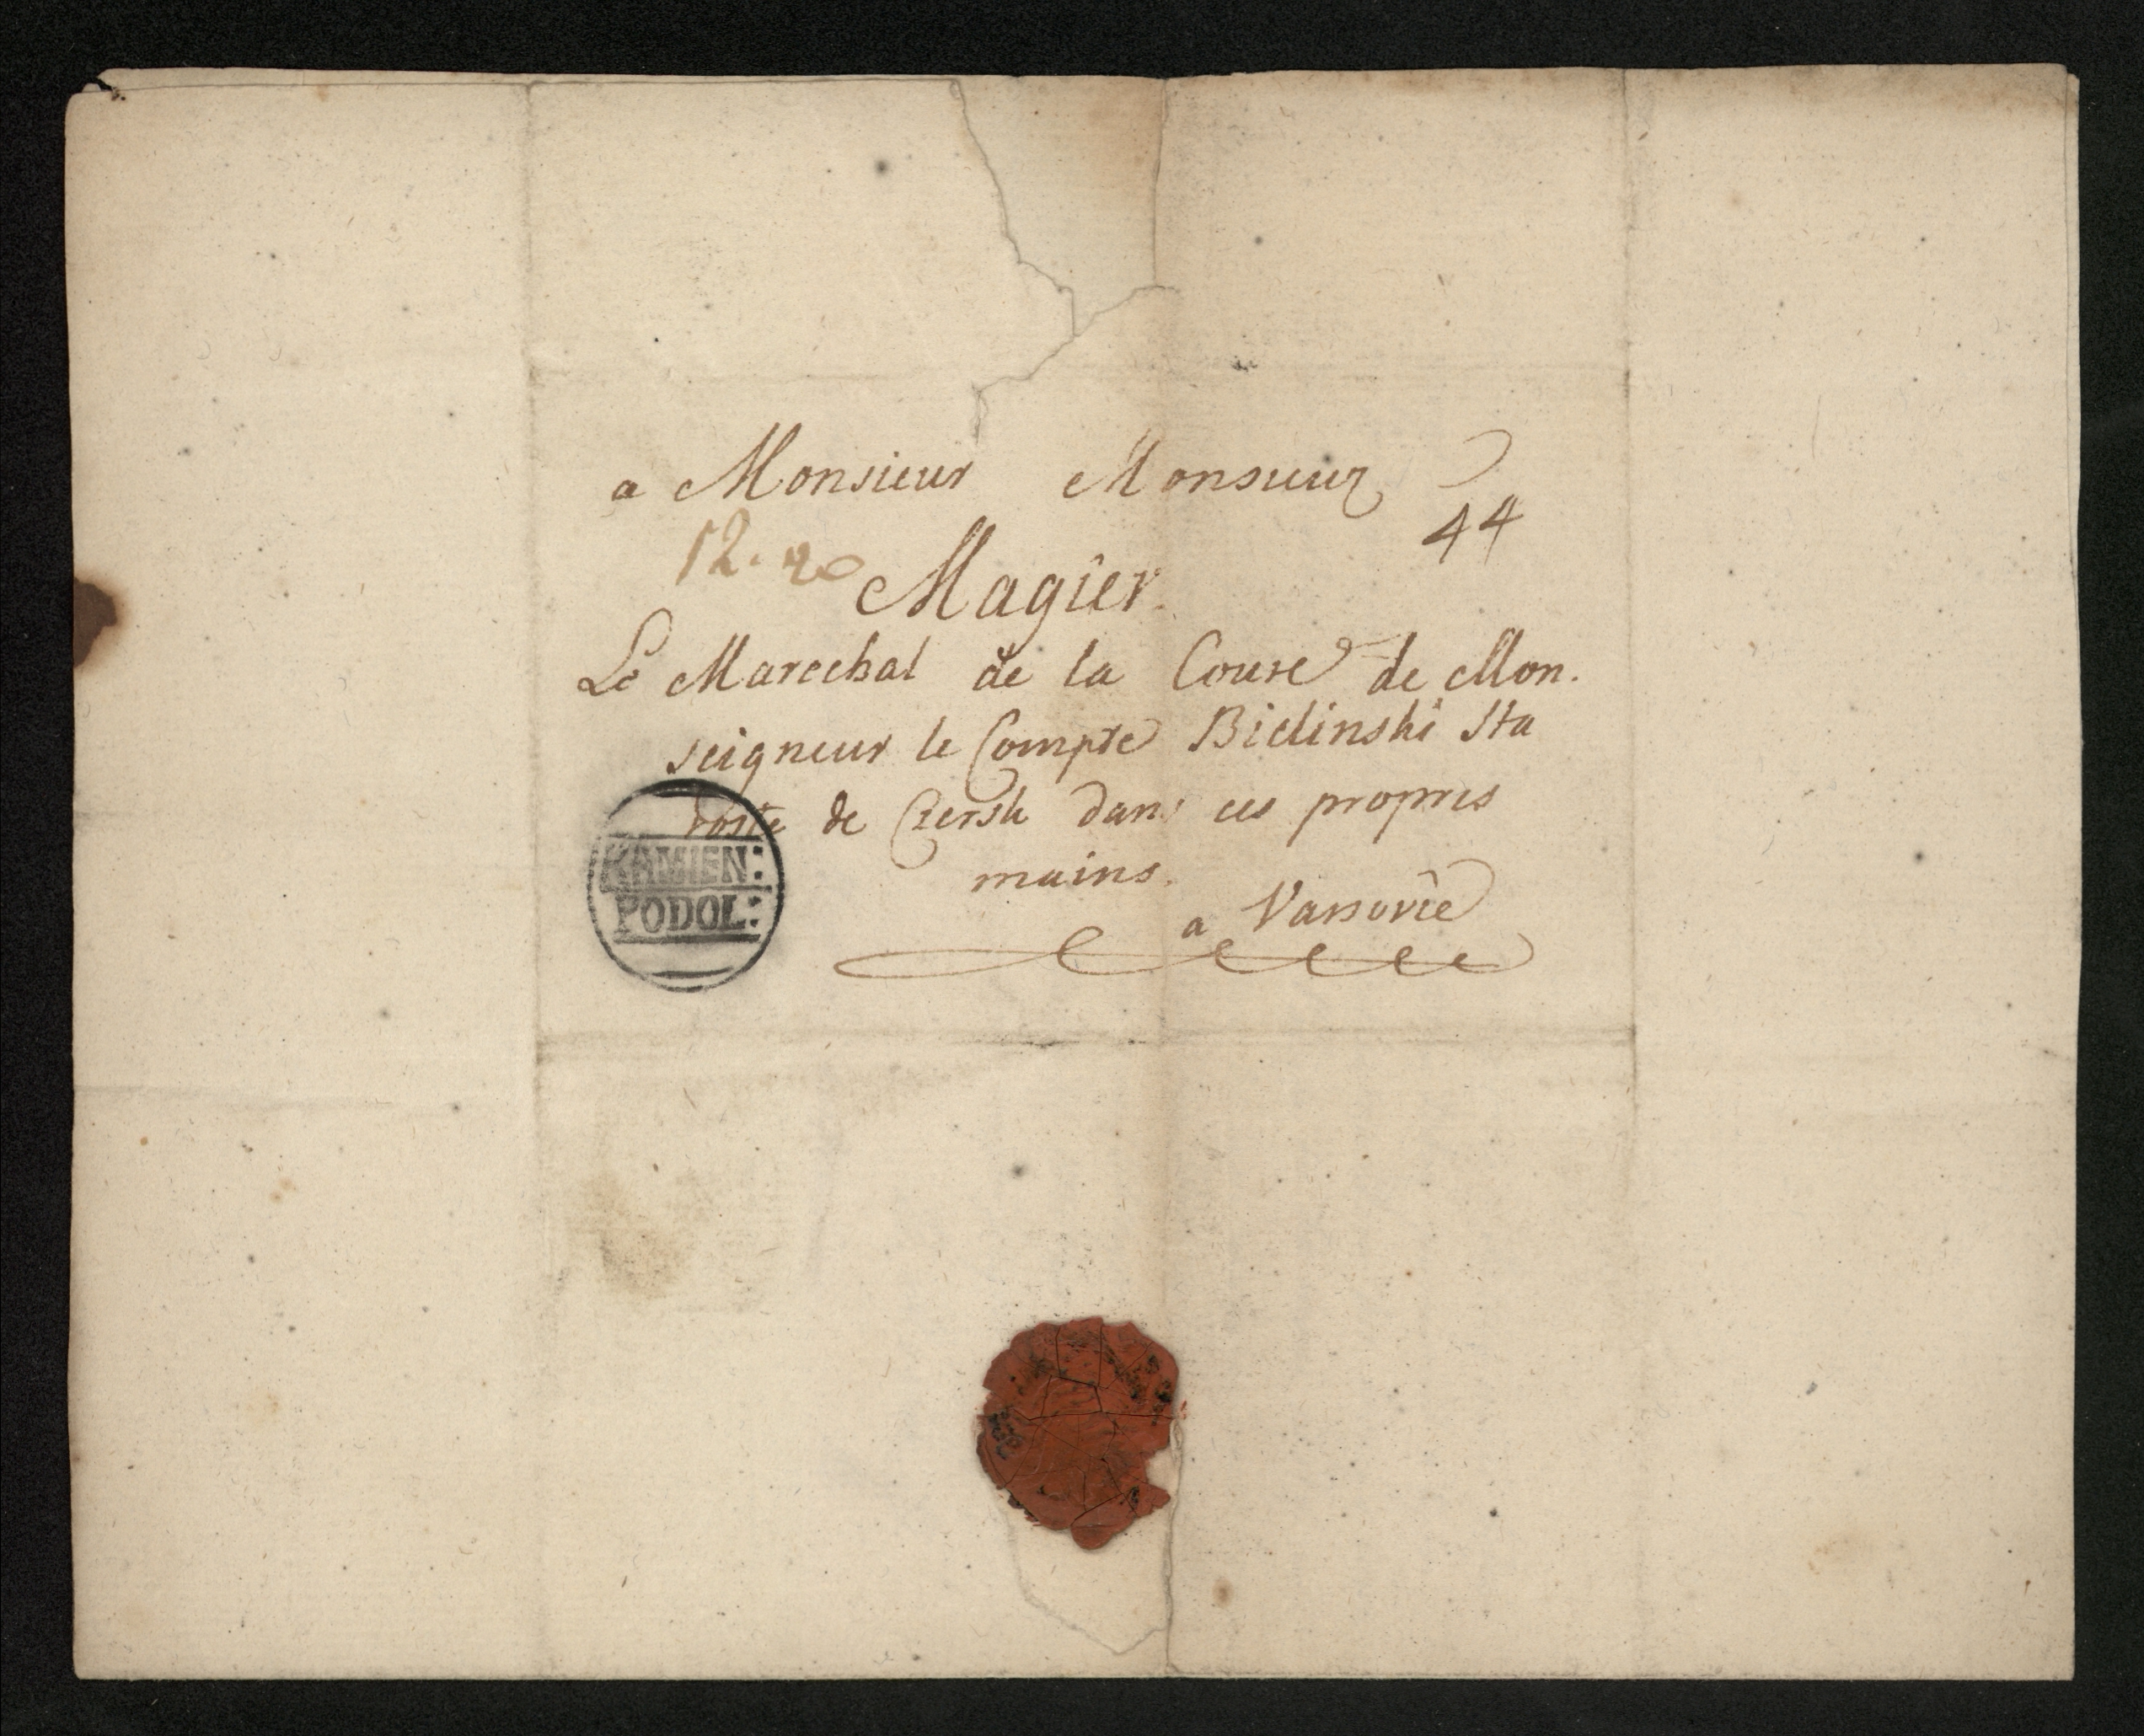 a Monsieur Monsieur
44
12. 20
Magier.
Le Marechal de la Coure de Mon.
seigneur le Compte Bielinski Sta
roste de Czersk dans ces propres
mains.
a Varsovie
KAMIEN:
PODOL: